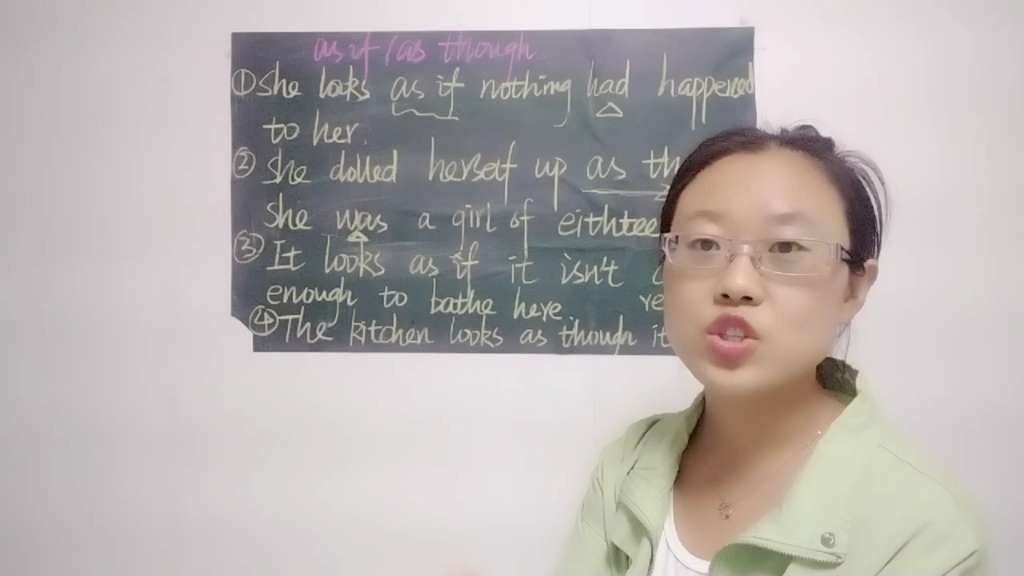 as if / as though
① She looks as if nothing had happened
to her.
② She dolled herself up as th
She was a girl of eithtee
③ It looks as if it isn't
enough to bathe here. re
④ The kitchen looks as though it